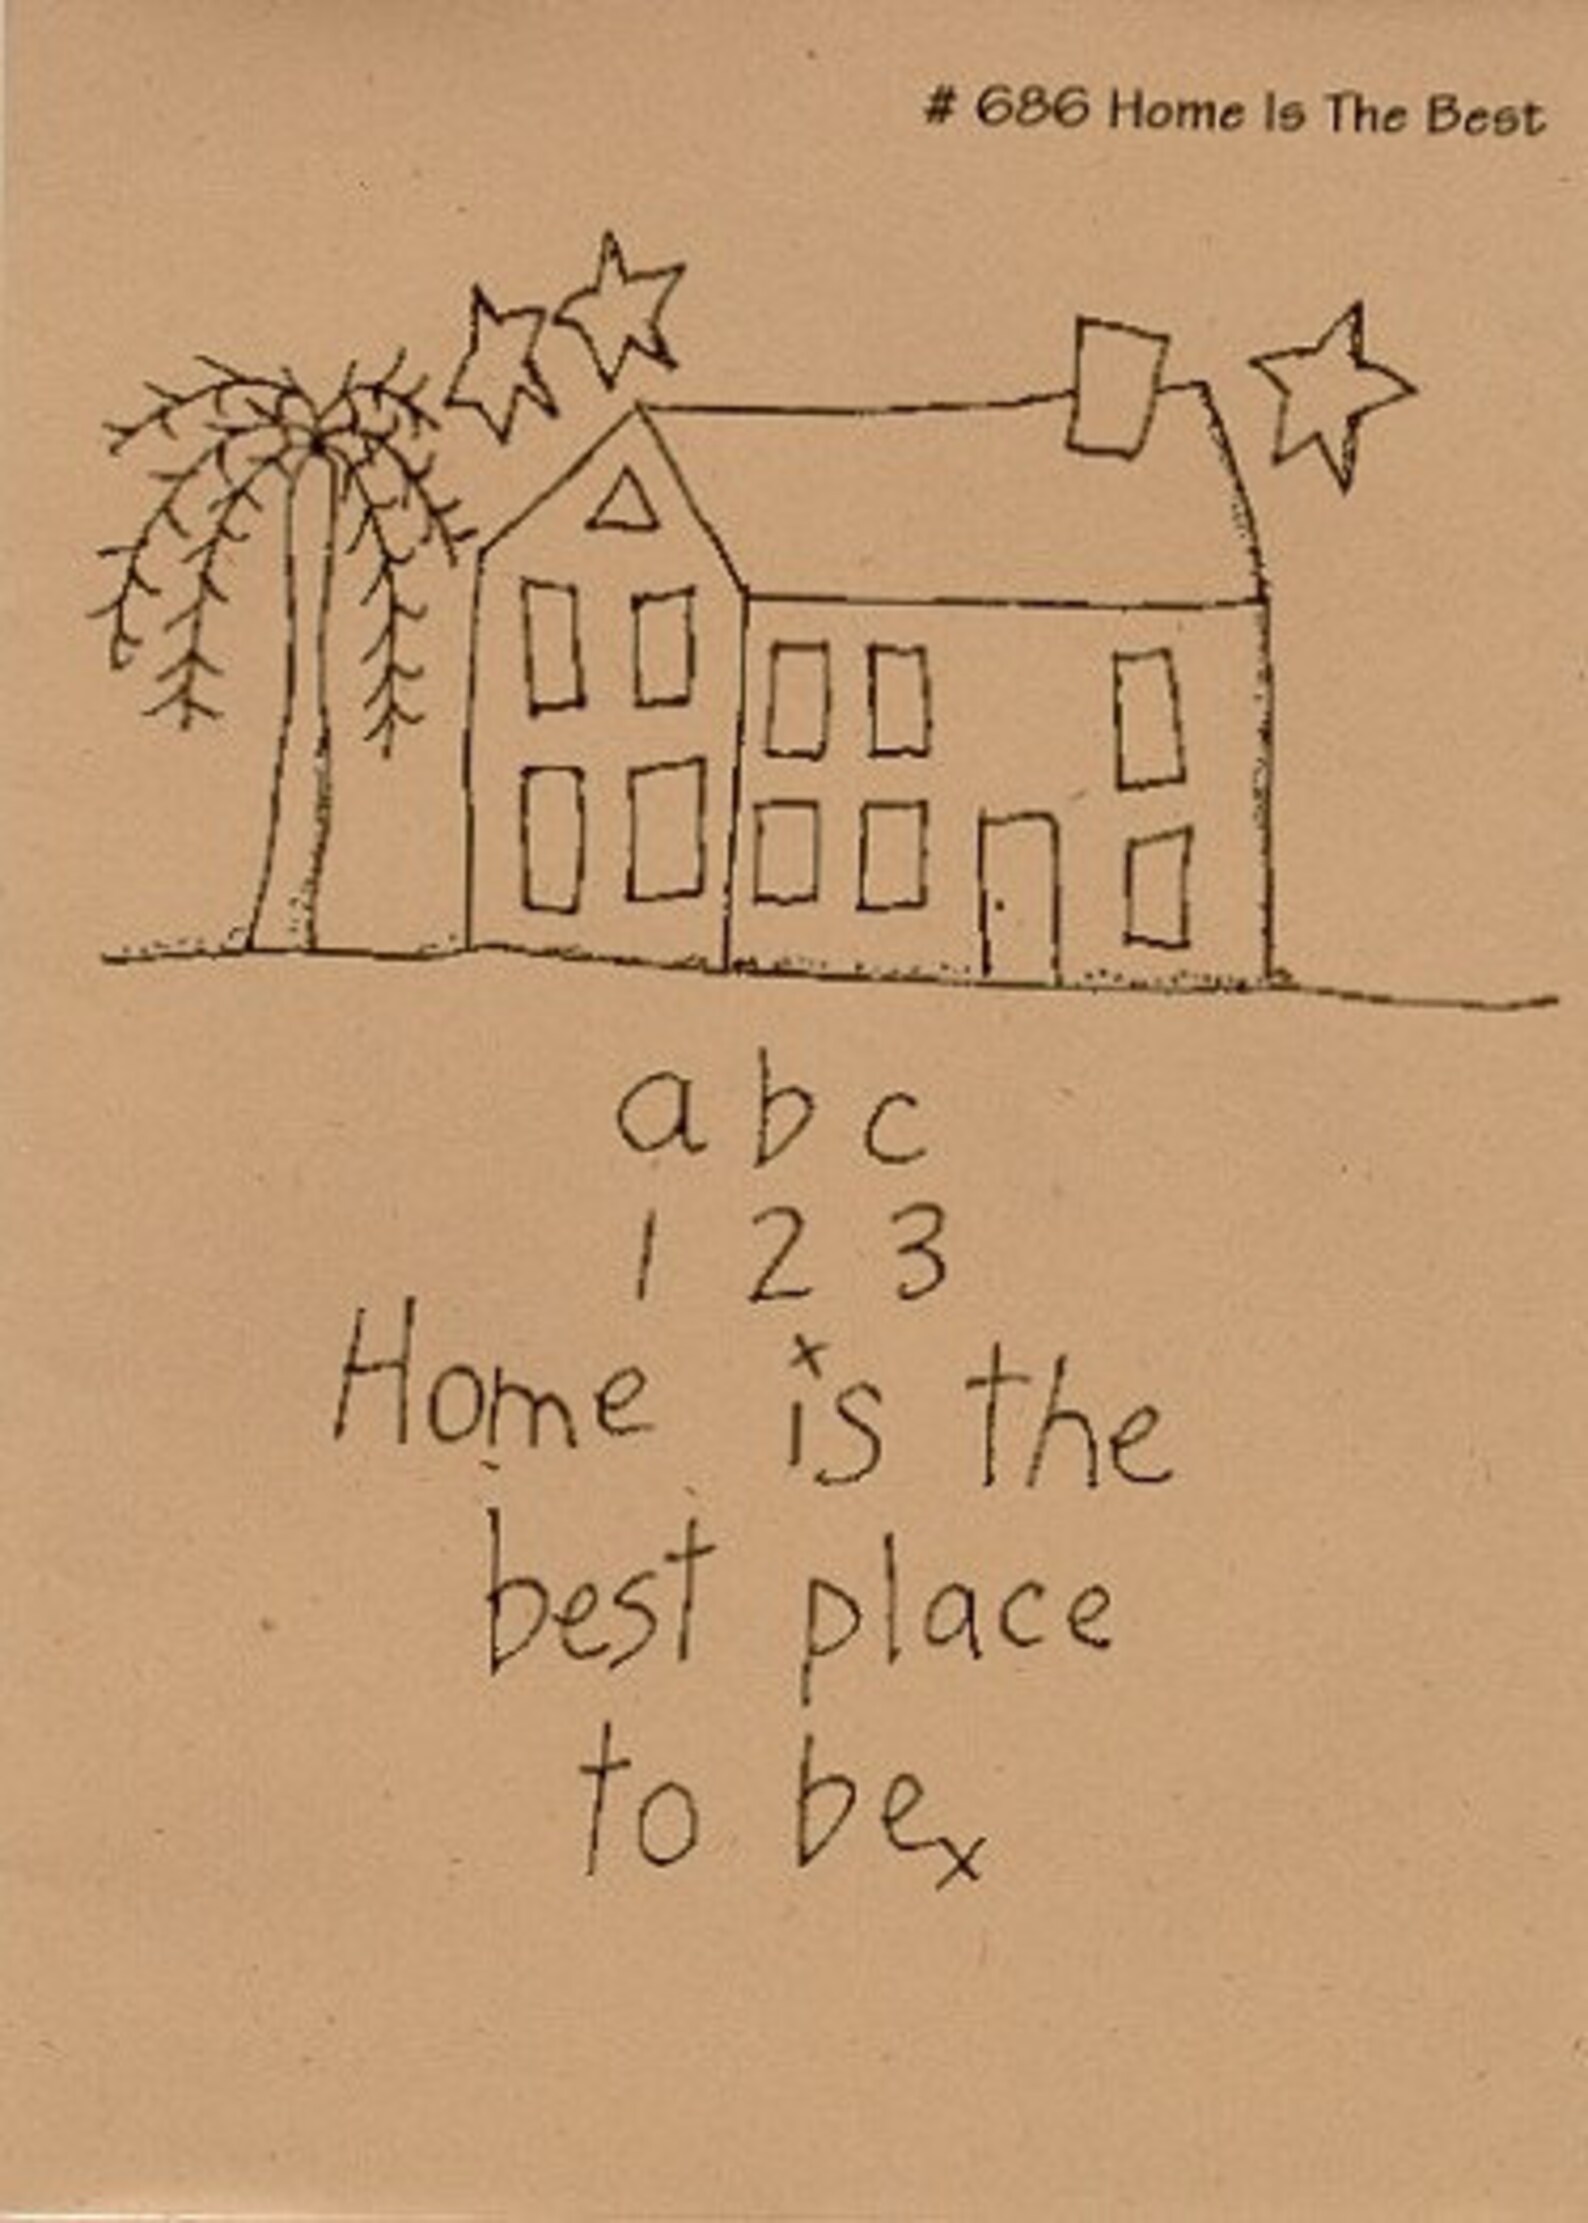 # 686 Home Is The Best
a b c
1 2 3
Home is the
best place
to be x